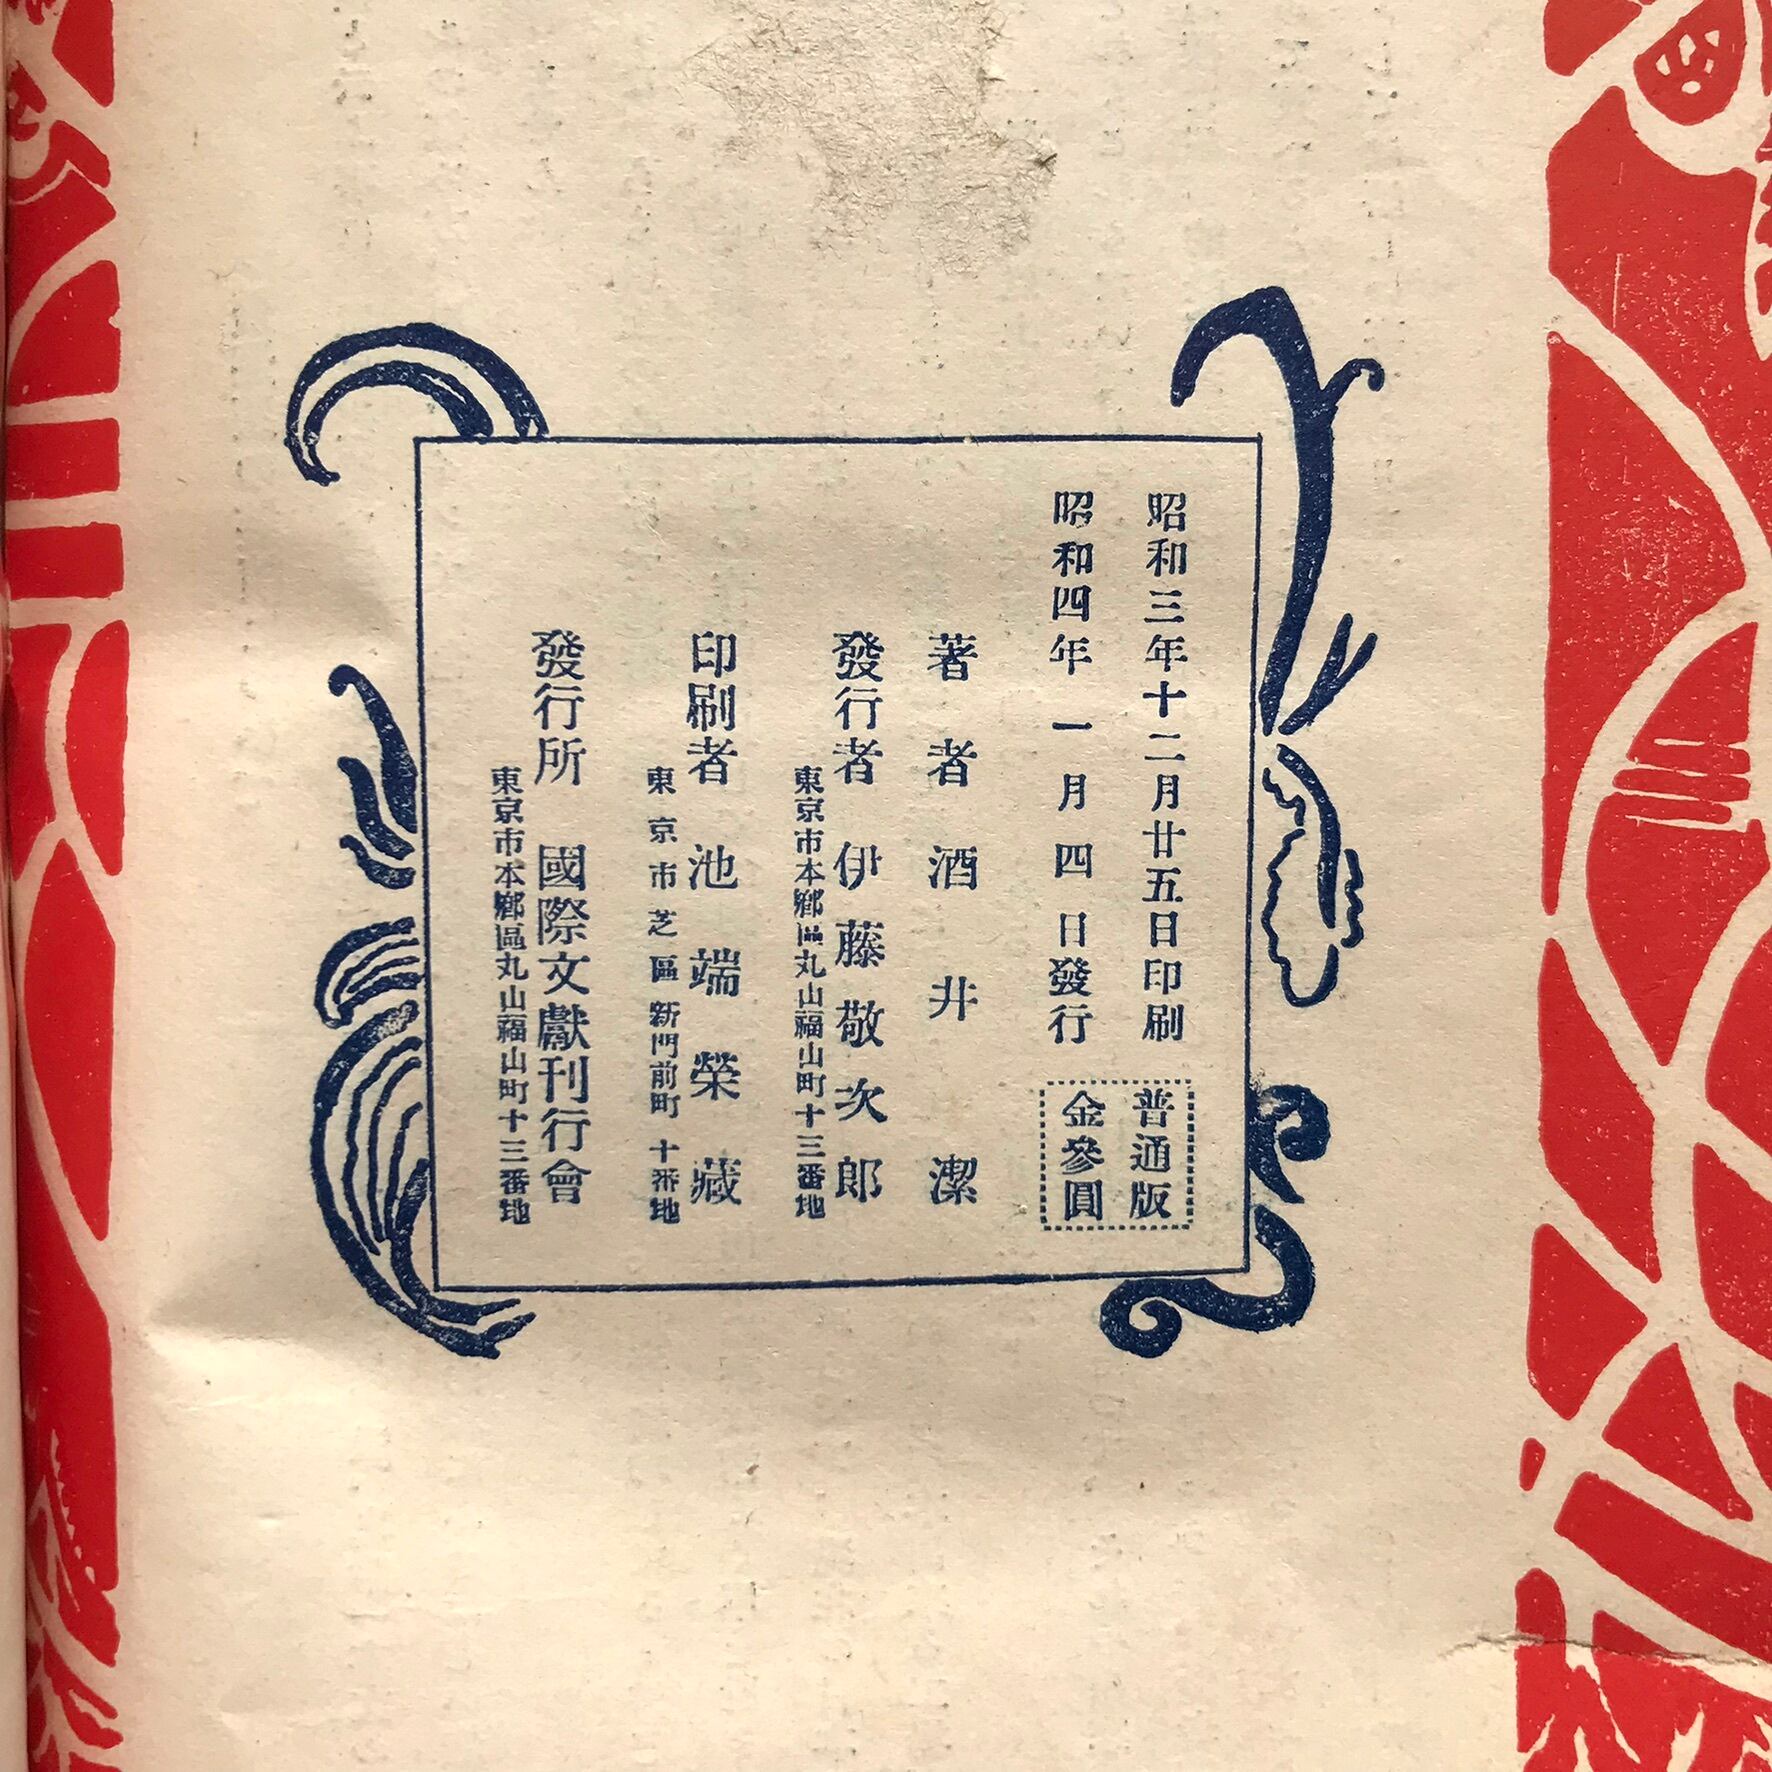 昭和三年十二月廿五日印刷
昭和四年一月四日發行
普通版
金參圓
著者 酒井潔
發行者 伊藤敬次郎
東京市本鄕區丸山福山町十三番地
印刷者 池端榮藏
東京市芝區新門前町十番地
發行所 國際文獻刊行會
東京市本鄕區丸山福山町十三番地